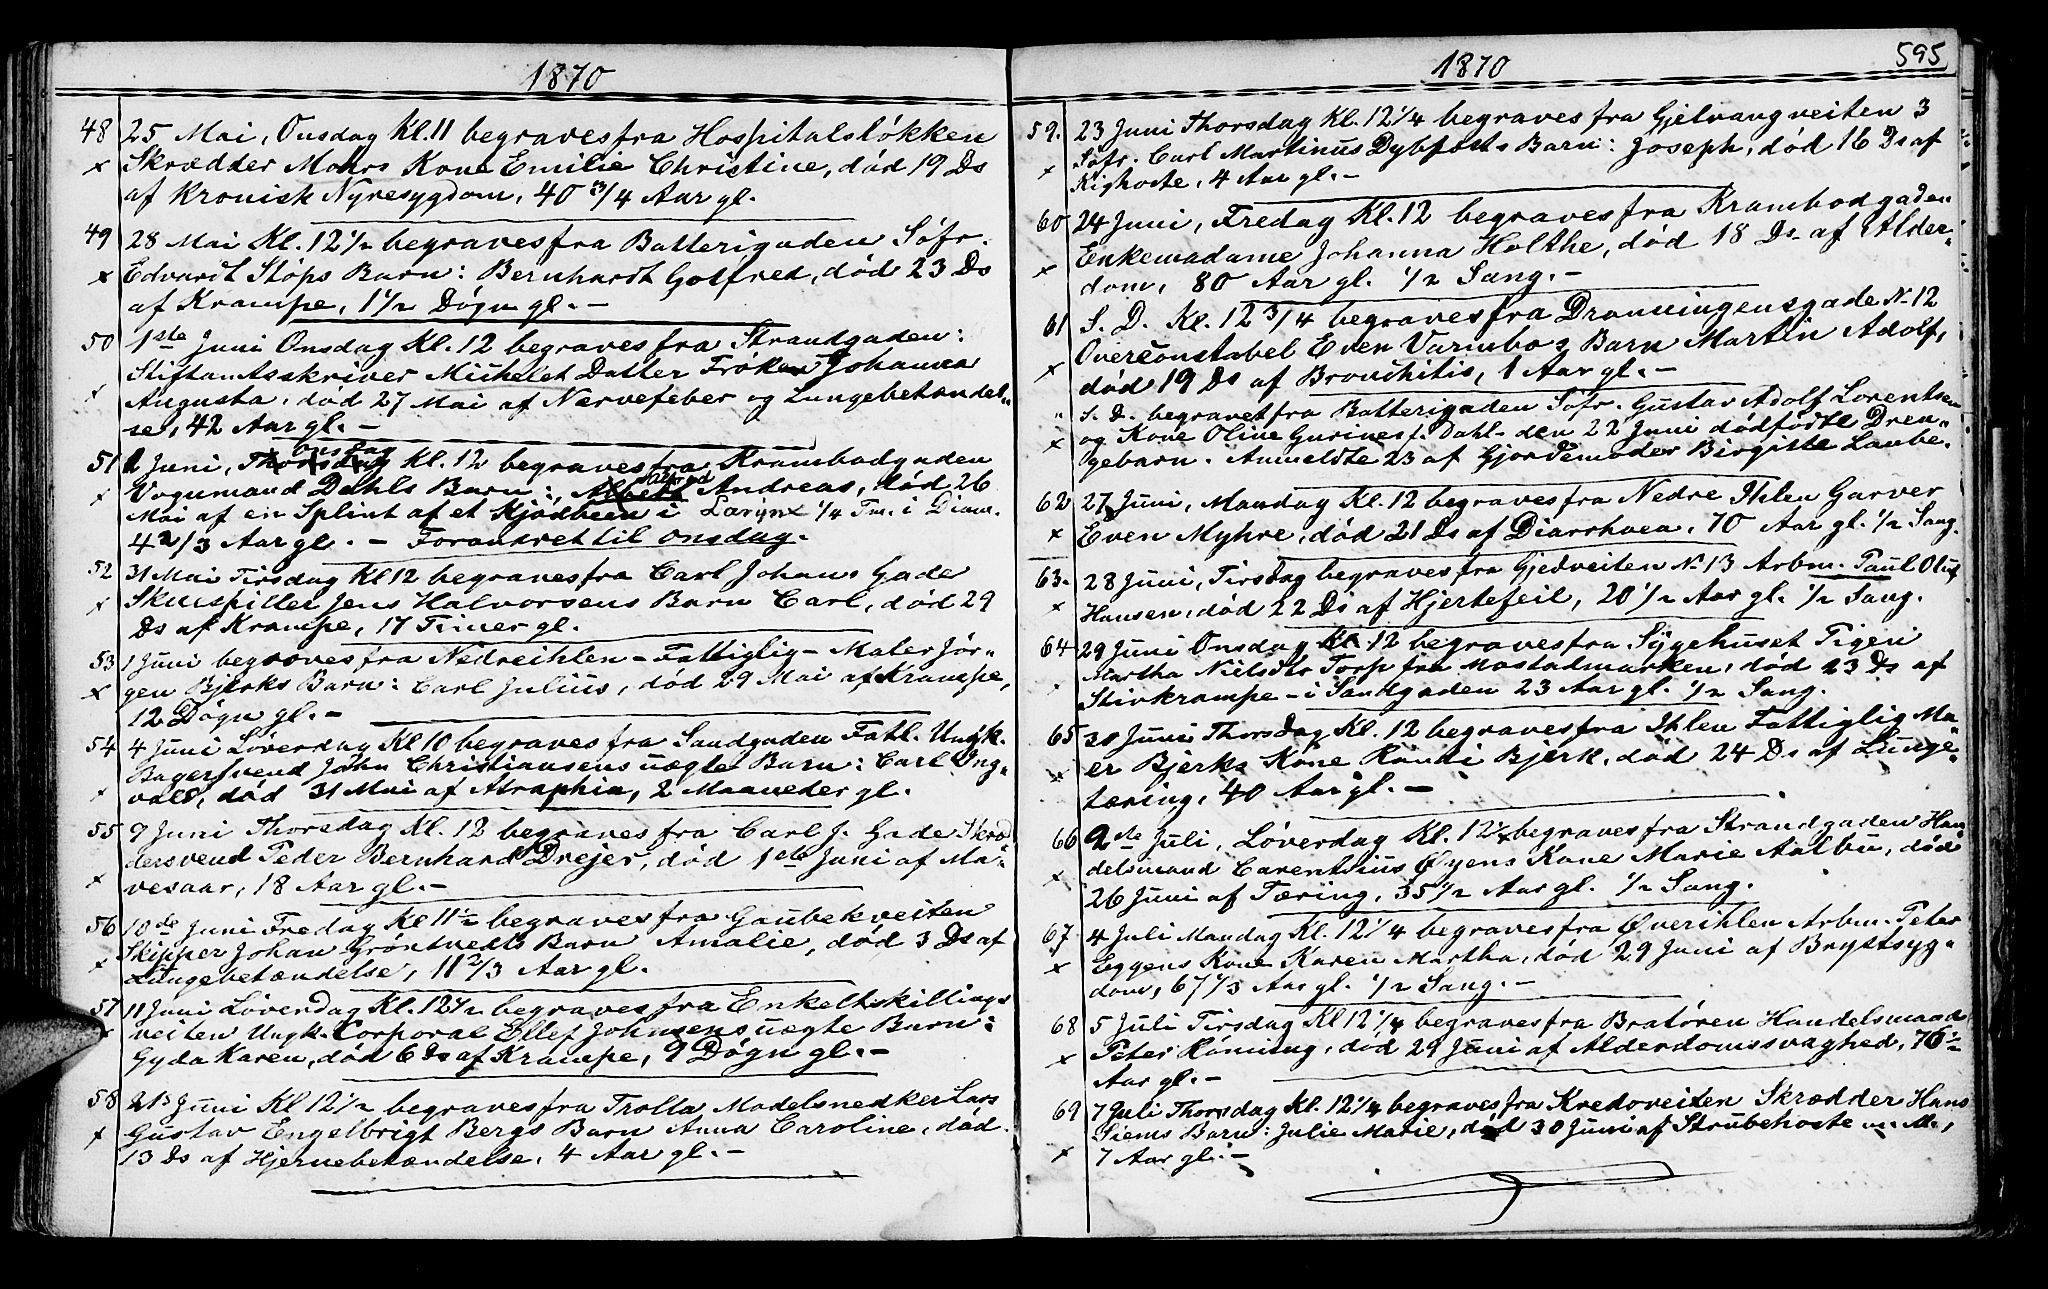 1870
48 25 Mai, Onsdag Kl. 11 begraves fra Hospitalsløkken
x Skrædder Mohrs Kone Emilie Christine, død 19 Ds
af kronisk Nyresygdom, 40 3/4 Aar gl.
49 28 Mai Kl. 12 1/2 begraves fra Batterigaden Söfr.
x Edvardt Stöps Barn: Bernhardt Gotfred, död 23 Ds
af Krampe, 1 1/2 Døgn gl. —
50 1ste Juni Onsdag Kl. 12 begraves fra Strandgaden:
Stiftamtsskriver Michelet Datter Frøken Johanna
x Augusta, død 27 Mai af Nervefeber og Lungebetændel"
se, 42 Aar gl. —
Onsdag
51 2 Juni, Thorsdag Kl. 12 begraves fra Krambodgaden
Alfred
x Vognmand Dahls Barn: Albert Andreas, død 26
Mai af en Splint af et Kjødbeen i Larynx 1/4 Tm. i Diam.
4 2/3 Aar gl. — Forandret til Onsdag.
52 31 Mai Tirsdag Kl 12 begraves fra Carl Johans Gade
x Skuespiller Jens Halvorsens Barn Carl, død 29
Ds af Krampe, 17 Timer gl.
53 1 Juni begraves fra Nedreihlen — Fattiglig — Maler Jör"
x gen Bjerks Barn: Carl Julius, død 29 Mai af Krampe,
12 Døgn gl. —
54 4 Juni Løverdag Kl 10 begraves fra Sandgaden Fatl. Ungk.
Bagersvend John Christiansens uægte Barn: Carl Ing"
x vald, død 31 Mai af Atrophia, 2 Maaneder gl.
55 9 Juni Thorsdag Kl. 12 begraves fra Carl J. Gade Skræd
dersvend Peder Bernhard Drejer, død 1ste Juni af Ma"
x vesaar, 18 Aar gl. —
56 10de Juni Fredag Kl 11 1/2 begraves fra Gaubekveiten
x Skipper Johan Gröntvedts Barn Amalie, død 3 Ds af
Lungebetændelse, 11 2/3 Aar gl.
57 11 Juni Løverdag Kl. 12 1/2 begraves fra Enkeltskillings
x veiten Ungk. Corporal Ellef Johnsens uægte Barn:
Gyda Karen, død 6 Ds af Krampe, 9 Døgn gl. —
58 21 Juni Kl 12 1/2 begraves fra Trolla Modelsnedker Lars
x Gustav Engelbrigt Bergs Barn Anna Caroline, død
13 Ds af Hjernebetændelse, 4 Aar gl. —
1870
595
59. 23 Juni Thorsdag Kl. 12 1/4 begraves fra Gjelvangveiten 3
x Söfr. Carl Martinus Dybforts Barn: Joseph, død 16 Ds af
Kighoste, 4 Aar gl. —
60 24 Juni, Fredag Kl. 12 begraves fra Krambodgaden
x Enkemadame Johanna Holthe, død 18 Ds af Alder"
dom, 80 Aar gl. 1/2 Sang. —
61 S. D. Kl. 12 3/4 begraves fra Dronningensgade N. 12
x Overconstabel Even Varmbos Barn Martin Adolf,
død 19 Ds af Bronchitis, 1 Aar gl. —
" S. D. begravet fra Batterigaden Söfr. Gustav Adolf Lorentsen
x og Kone Oline Gurine f. Dahl den 22 Juni dødfødte Dren"
gebarn. Anmeldte 23 af Gjordemoder Birgitte Laube.
62 27 Juni, Mandag Kl. 12 begraves fra Nedre Ihlen Garver
x Even Myhre, død 21 Ds af Diarrhoea, 70 Aar gl. 1/2 Sang.
63. 28 Juni, Tirsdag begraves fra Gjedveiten N. 13 Arbm. Paul Oluf
x Hansen, død 22 Ds af Hjertefeil, 20 1/2 Aar gl. 1/2 Sang.
64 29 Juni Onsdag Kl. 12 begraves fra Sygehuset Pigen
Martha Nielsdtr Torp fra Mostadmarken, død 23 Ds af
Stivkrampe — i Sandgaden 23 Aar gl. 1/2 Sang.
65 30 Juni Thorsdag Kl. 12 begraves fra Ihlen Fattiglig Ma"
x er Bjerks Kone Randi Bjerk, død 24 Ds af Lunge"
tæring, 40 Aar gl. —
66 2de Juli, Løverdag Kl. 12 1/2 begraves fra Strandgaden Han
x delsmand Carentsius Øyens Kone Marie Aalbu, død
26 Juni af Tæring, 35 1/2 Aar gl. 1/2 Sang.
67. 4 Juli Mandag Kl. 12 1/4 begraves fra Øvreihlen Arbm. Peter
x Eggens Kone Karen Martha, død 29 Juni af Brystsyg"
dom, 67 1/3 Aar gl. 1/2 Sang. —
68 5 Juli Tirsdag Kl 12 1/4 begraves fra Bratøren Handelsmand
x Peter Rönning, død 29 Juni af Alderdomssvaghed, 76 1/2
Aar gl. —
69 7 Juli Thorsdag Kl. 12 1/4 begraves fra Kredoveiten Skrædder Hans
Siems Barn: Julie Marie, død 30 Juni af Strubehoste m. M.,
x 7 Aar gl. —